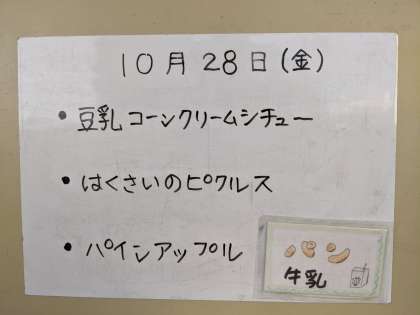 10月28日(金)
• 豆乳コーンクリームシチュー
• はくさいのピクルス
• パインアップル
パン
牛乳